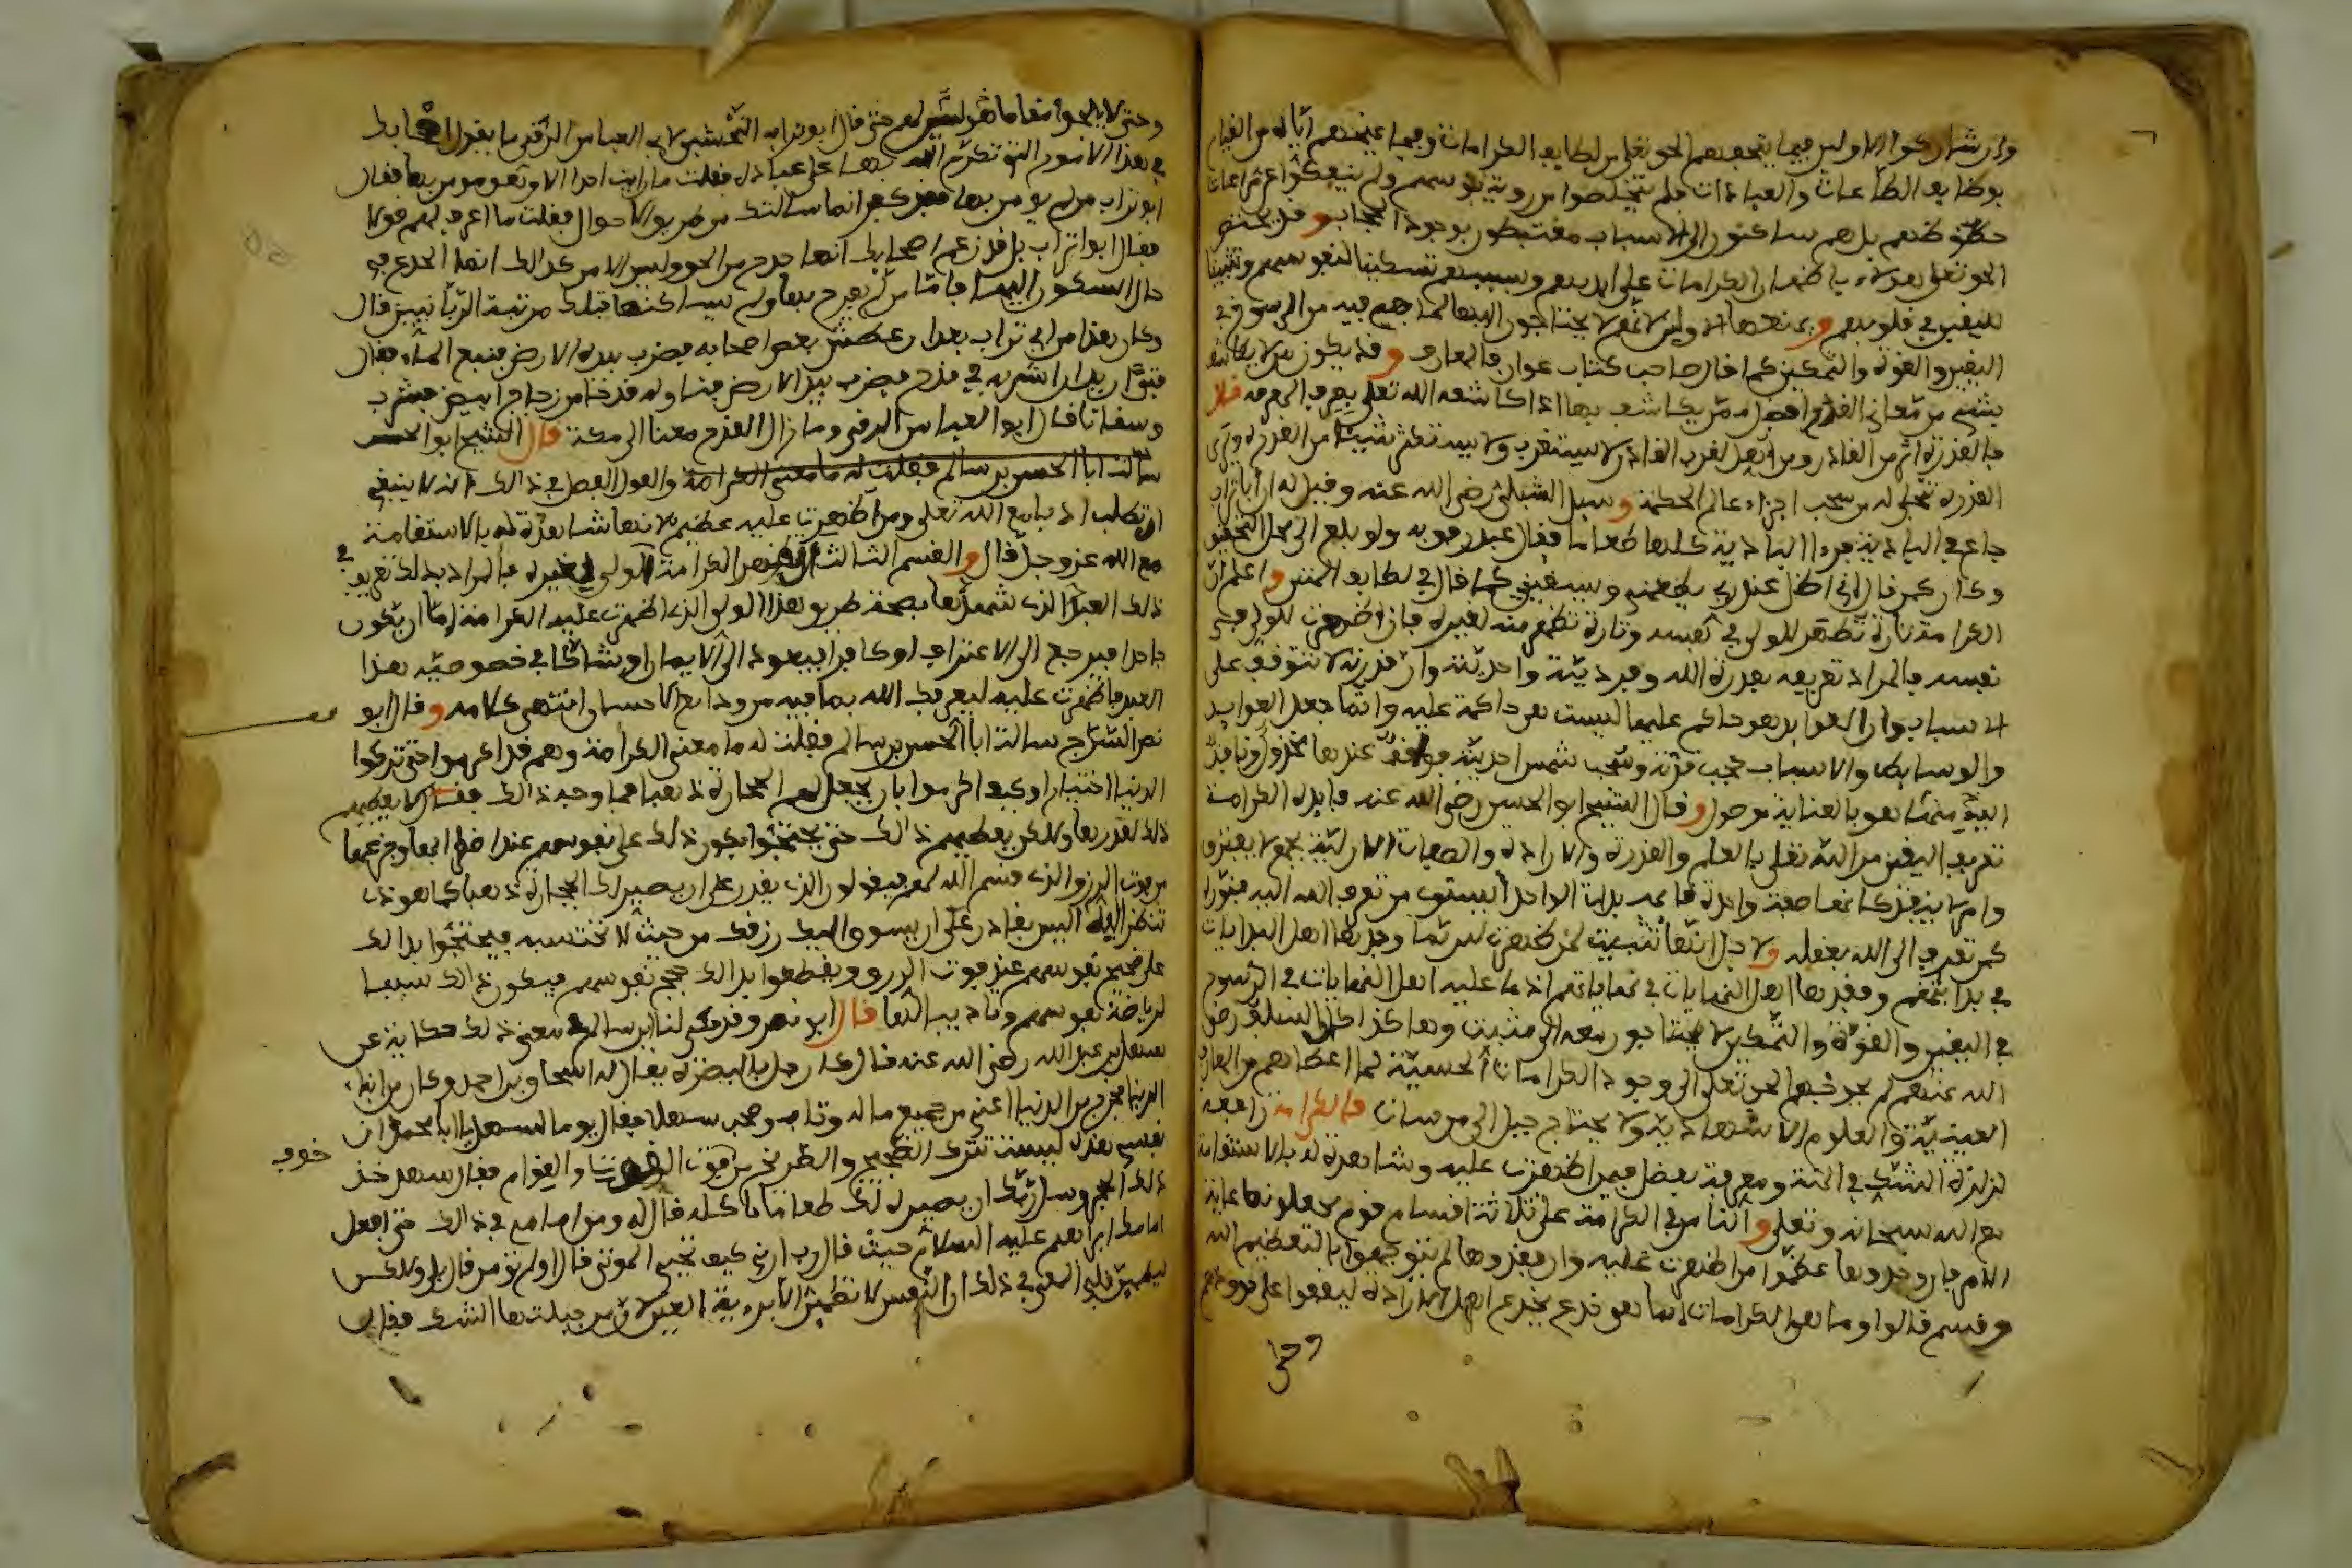 وان شاركوا الاولين فيما يتحفهم الحق تعلى من لطايف الكرامات وفيما عينهم اياه من القيام
بوظايف الطاعات والعبادات فلم يتخلصوا من روية نفوسهم ولم ينفكوا عن مراعات
حظوظهم بل هم ساكنون الى الاسباب مغتبطون بوجود الحجاب و قد يختص
الحق تعلى هولاء باظهار الكرامات على ايديهم وبسببهم تسكينا لنفوسهم وتثبيتا
لليقين في قلوبهم و يمنعها اولئك لانهم لا يحتاجون اليها لما هم فيه من الرسوخ في
اليقين والقوة والتمكين كما قال صاحب كتاب عوارف المعارف و قد يكون من لا يكاشف
بشيء من معاني القدرة افضل ممن يكاشف بها اذا كاشفه الله تعلى بصرف المعرفة
فالقدرة اثر من القادر ومن اهل لقرب القادر لا يستغرب ولا يستكثر شيئا من القدرة ويرى
القدرة تتجلى له من سجف اجزاء عالم الحكمة و سيل الشبلي رضي الله عنه وقيل له ان ابا تراب
جاع في البادية فرءا البادية كلها طعاما فقال عبد رفق به ولو بلغ الى محل التحقيق
وكان كمن قال اني اظل عند ربي يطعمني ويسقيني كما قال في لطايف المنن و اعلم ان
الكرامة تارة تظهر للولي في نفسه وتارة تظهر منه لغيره فان اظهرت للولي في
نفسه فالمراد تعريفه بقدرة الله وفرديته واحديته وان قدرته لا تتوقف على
الاسباب وان العوايد هو حاكم عليها ليست هي حاكمة عليه وانما جعل العوايد
والوسايط والاسباب حجب قدرته وسحب شمس احديته فواقف عندها مخذول ونافذ
اليه منها هو بالعناية موصول و قال الشيخ ابو الحسن رضي الله عنه فايدة الكرامة
تعريف اليقين من الله تعلى بالعلم والقدرة والارادة والصفات الازلية بجمع لا يفترق
وامر لا ينفذ كانها صفة واحدة قايمة بذات الواحد ايستوي من تعرف الله اليه بنوره
كمن تعرف الى الله بعقله و لاجل انها تثبيت لمن ظهرت له ربما وجدها اهل البدايات
في بداياتهم وفقدها اهل النهايات في نهاياتهم اذ ما عليه اهل النهايات في الرسوخ
في اليقين والقوة والتمكين لا يحتاجون معه الى مثبت وهكذا كان السلف رضي
الله عنهم لم يحوجهم الحق تعلى الى وجود الكرامات الحسية لما اعطاهم من المعارف
الغيبية والعلوم الاشهادية ولا يحتاج جبل الى مرسات فالكرامة رافعة
لزلزلة الشك في المنة ومعرفة بفضل فيمن اظهرت عليه وشاهدة له بالاستقامة
مع الله سبحانه وتعلى و الناس في الكرامة على ثلاثة اقسام قوم جعلوها غاية
الامر فان وجدوها عظموا من اظهرت عليه وان فقدوها لم يتوجهوا بالتعظيم اليه
وقسم قالوا وما هو الكرامات انما هو خدع يخدع اهل الارادة ليقفوا على حدودهم
وحتى
وحتى لا يلجوا مقاما هو ليس لهم حتى قال ابو تراب النخشبي لابي العباس الرقي ما يقول اصحابك
في هذا الامور التي تكرم الله بها على عباده فقلت ما رايت احدا الا وهو مومن بها فقال
ابو تراب من لم يومن بها فقد كفر انما سالتك من طريق الاحوال فقلت ما اعرف لهم قولا
فقال ابو تراب بل قد زعم اصحابك انها خدع من الحق وليس الامر كذالك انما الخدع في
حال السكون اليها فاما من لم يفرح بها ولم يساكنها فتلك مرتبة الربانيين قال
وكان هذا من ابي تراب بعد ان عطش بعض اصحابه فضرب بيده الارض فنبع الماء فقال
فتى اريد ان اشربه في قدح فضرب بيده الارض فناوله قدحا من زجاج ابيض فشرب
وسقانا قال ابو العباس الرقي وما زال القدح معنا الى مكة قال الشيخ ابو الحسن
سالت ابا الحسن بن سالم فقلت له ما معنى الكرامة والقول الفصل في ذالك انه لا ينبغي
ان تطلب ادبا مع الله تعلى ومن اظهرت عليه عظم لانها شاهدة له بالاستقامة
مع الله عز وجل قال و القسم الثالث ان تظهر الكرامة للولي لغيره فالمراد بذلك تعريف
ذلك العبد الذي شهدها بصحة طريق هذا الولي الذي اظهرت عليه الكرامة اما ان يكون
جاحدا فيرجع الى الاعتراف او كافرا فيعود الى الايمان او شاكا في خصوصية هذا
العبد فاظهرت عليه ليعرفك الله بما فيه من ودايع الاحسان انتهى كلامه و قال ابو
نصر السراج سالت ابا الحسن بن سالم فقلت له ما معنى الكرامة وهم قد اكرموا حتى تركوا
الدنيا اختيارا وكيف اكرموا بان يجعل لهم الحجارة ذهبا فما وجه ذالك فقال لا يعطيهم
ذلك لقدرها ولكن يعطيهم ذالك حتى يحتجوا بكون ذلك على نفوسهم عند اضطرابها وجزعها
من فوت الرزق الذي قسم الله لهم فيقولون الذي يقدر على ان يصير لك الحجارة ذهبا كما هو ذا
تنظر اليه اليس بقادر على ان يسوق اليك رزقك من حيث لا تحتسبه فيحتجوا بذالك
على ضجيج نفوسهم عند فوت الرزق ويقطعوا بذالك حجج نفوسهم فيكون ذالك سببا
لرياضة نفوسهم وتاديب لها قال ابو نصر وقد حكى لنا ابن سالم في معنى ذلك حكاية عن
سهل بن عبد الله رضي الله عنه قال كان رجل بالبصرة يقال له اسحاق بن احمد وكان من ابناء
الدنيا فخرج من الدنيا اعني من جميع ماله وتاب وصحب سهلا فقال يوما لسهل يا ابا محمد ان
نفسي هذه ليست تترك الضجيج والصراخ من خوف فوت القوت والقوام فقال سهل خذ
خوف
ذلك الحجر وسل ربك ان يصيره لك طعاما تاكله قال له ومن امامي في ذالك حتى افعل
امامك ابراهيم عليه السلام حيث قال رب ارني كيف تحيي الموتى قال اولم تومن قال بلى ولكن
ليطمين قلبي المعنى في ذلك ان النفس لا تطمئن الا برؤية العين لان من جبلتها الشك فقال